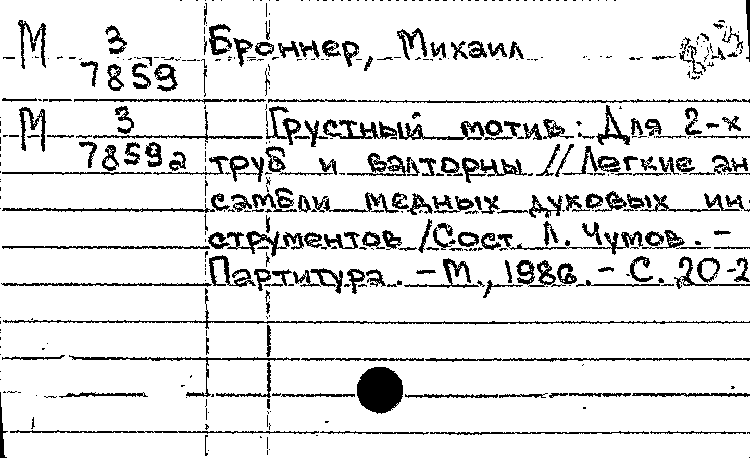 М 3 Броннер, Михаил
7859
М 3 Грустный мотив: Для 2-х
7859а труб и валторны // Легкие ан
самбли медных духовых ин-
струментов /Сост. Л. Чумов. –
Партитура. – М., 1986. – С. 20-2